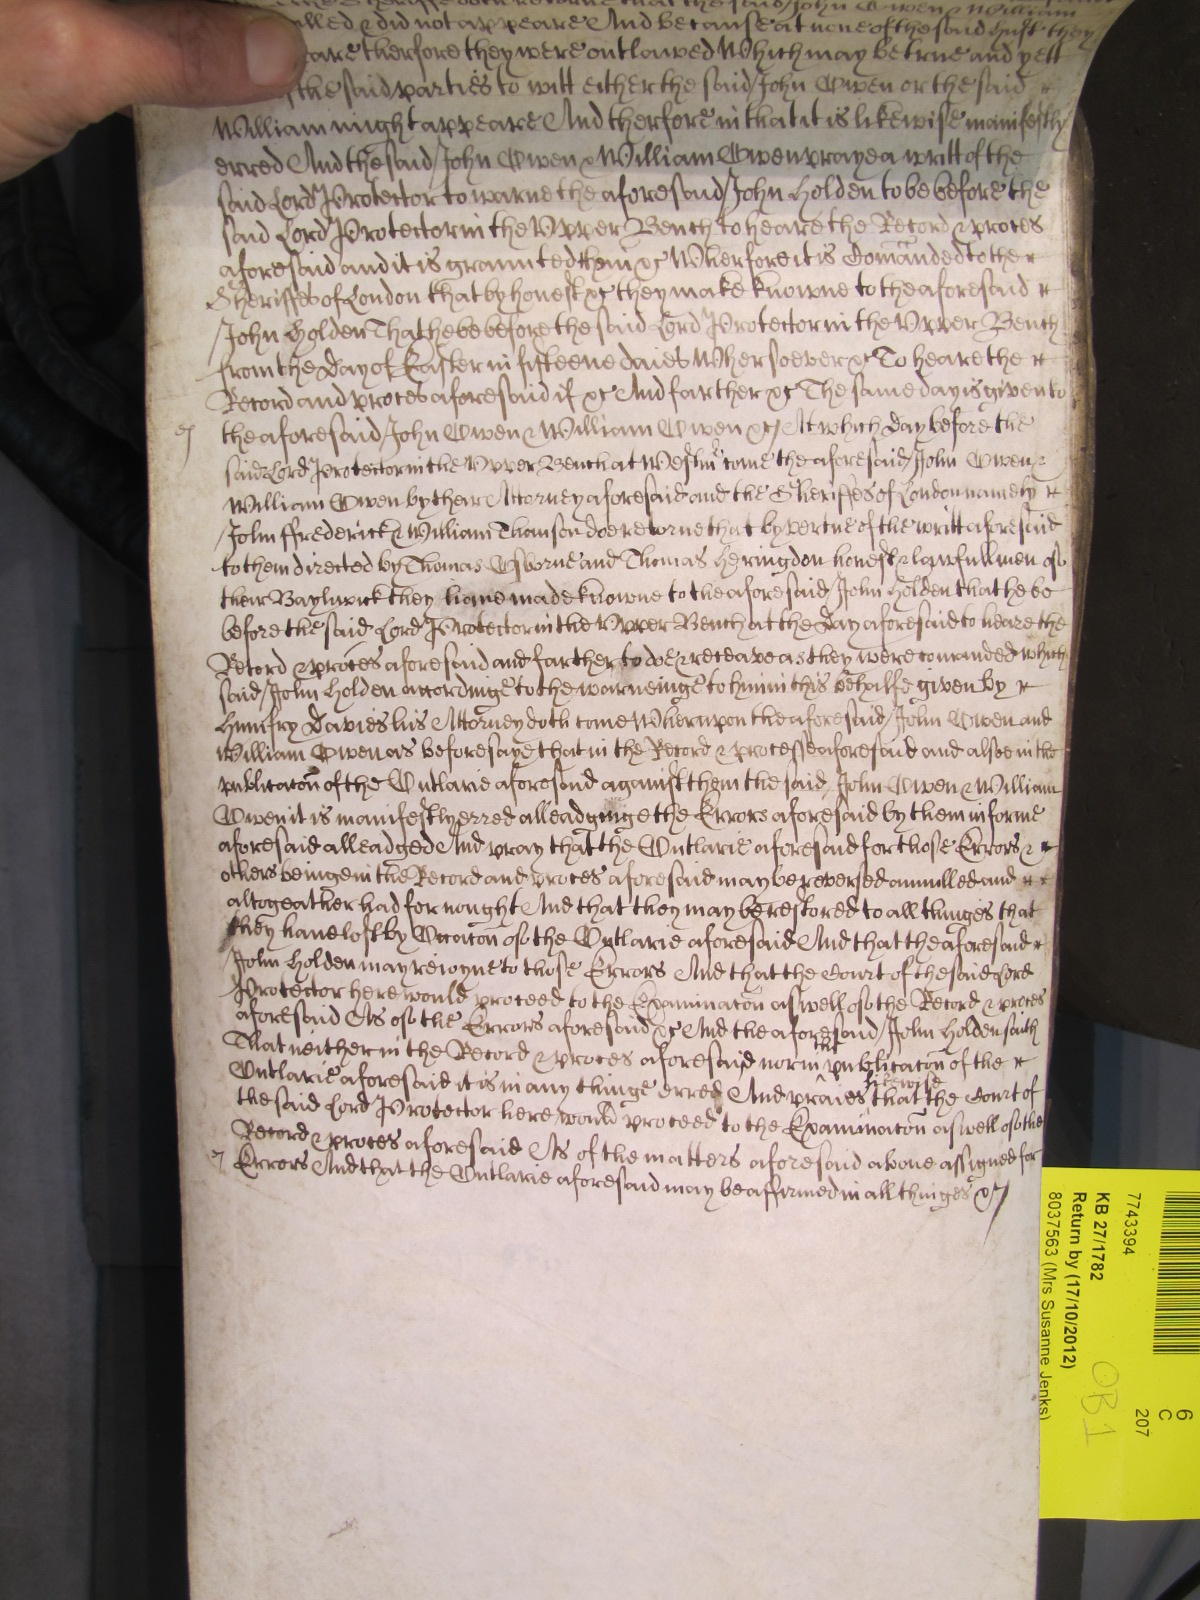 the Sheriffe doth retorne that the said John Owen & William
alled & did not appeare And because at none of the said Hust they
eare therfore they were outlawed Which may be true and yett
of the said parties to witt either the said John Owen or the said
William might appeare And therfore in that it is likewise manifestly
erred And the said John Owen & William Owen pray a writt of the
said Lord Protector to warne the aforesaid John Holden to be before the
said Lord Protector in the Upper Bench to heare the Record & proces
aforesaid and it is graunted them &c Wherfore it is Comanded to the
Sheriffes of London that by honest &c they make knowne to the aforesaid
John Holden That he be before the said Lord Protector in the Upper Bench
from the Day of Easter in fifteene daies Whersoever &c To heare the
Record and proces aforesaid if &c And farther &c The same day is given to
the aforesaid John Owen & William Owen &c At which Day before the
said Lord Protector in the Upper Bench at Westmr come the aforesaid John Owen &
William Owen by their Attorney aforesaid and the Sheriffes of London namely
John ffrederick & William Thomson doe retorne that by vertue of the writt aforesaid
to them directed by Thomas Osborne and Thomas Heringdon honest & lawfull men of
their Baylywick they have made knowne to the aforesaid John Holden that he be
before the said Lord Protector in the Upper Bench at the Day aforesaid to heare the
Record & proces aforesaid and farther to doe & receave as they were comanded which
said John Holden accordinge to the warneinge to him in this behalfe given by
Humfry Davies his Attorney doth come Wherupon the aforesaid John Owen and
William Owen as before saye that in the Record & processe aforesaid and alsoe in the
publicacon of the Outlarie aforesaid against them the said John Owen & William
Owen it is manifestly erred alleadginge the Errors aforesaid by them in forme
aforesaid alleadged And pray that the Outlarie aforesaid for those Errors &
others beinge in the Record and proces aforesaid may be reversed annulled and
altogeather had for nought And that they may be restored to all thinges that
they have lost by Occacon of the Outlarie aforesaid And that the aforesaid
John Holden may rejoyne to those Errors And that the Court of the said Lord
Protector here would proceed to the Examinacon aswell of the Record & proces
aforesaid As of the Errors aforesaid &c And the aforesaid John Holden saith
That neither in the Record & proces aforesaid nor in the publicacon of the
Outlarie aforesaid it is in any thinge erred And praies likewise that the Court of
the said Lord Protector here would proceed to the Examinacon aswell of the
Record & proces aforesaid As of the matters aforesaid above assigned for
Errors And that the Outlarie aforesaid may be affirmed in all thinges &c
7743394
KB 27/1782
Return by (17/10/2012)
8037563 (Mrs Susanne Jenks)
6
C
207
OB 1